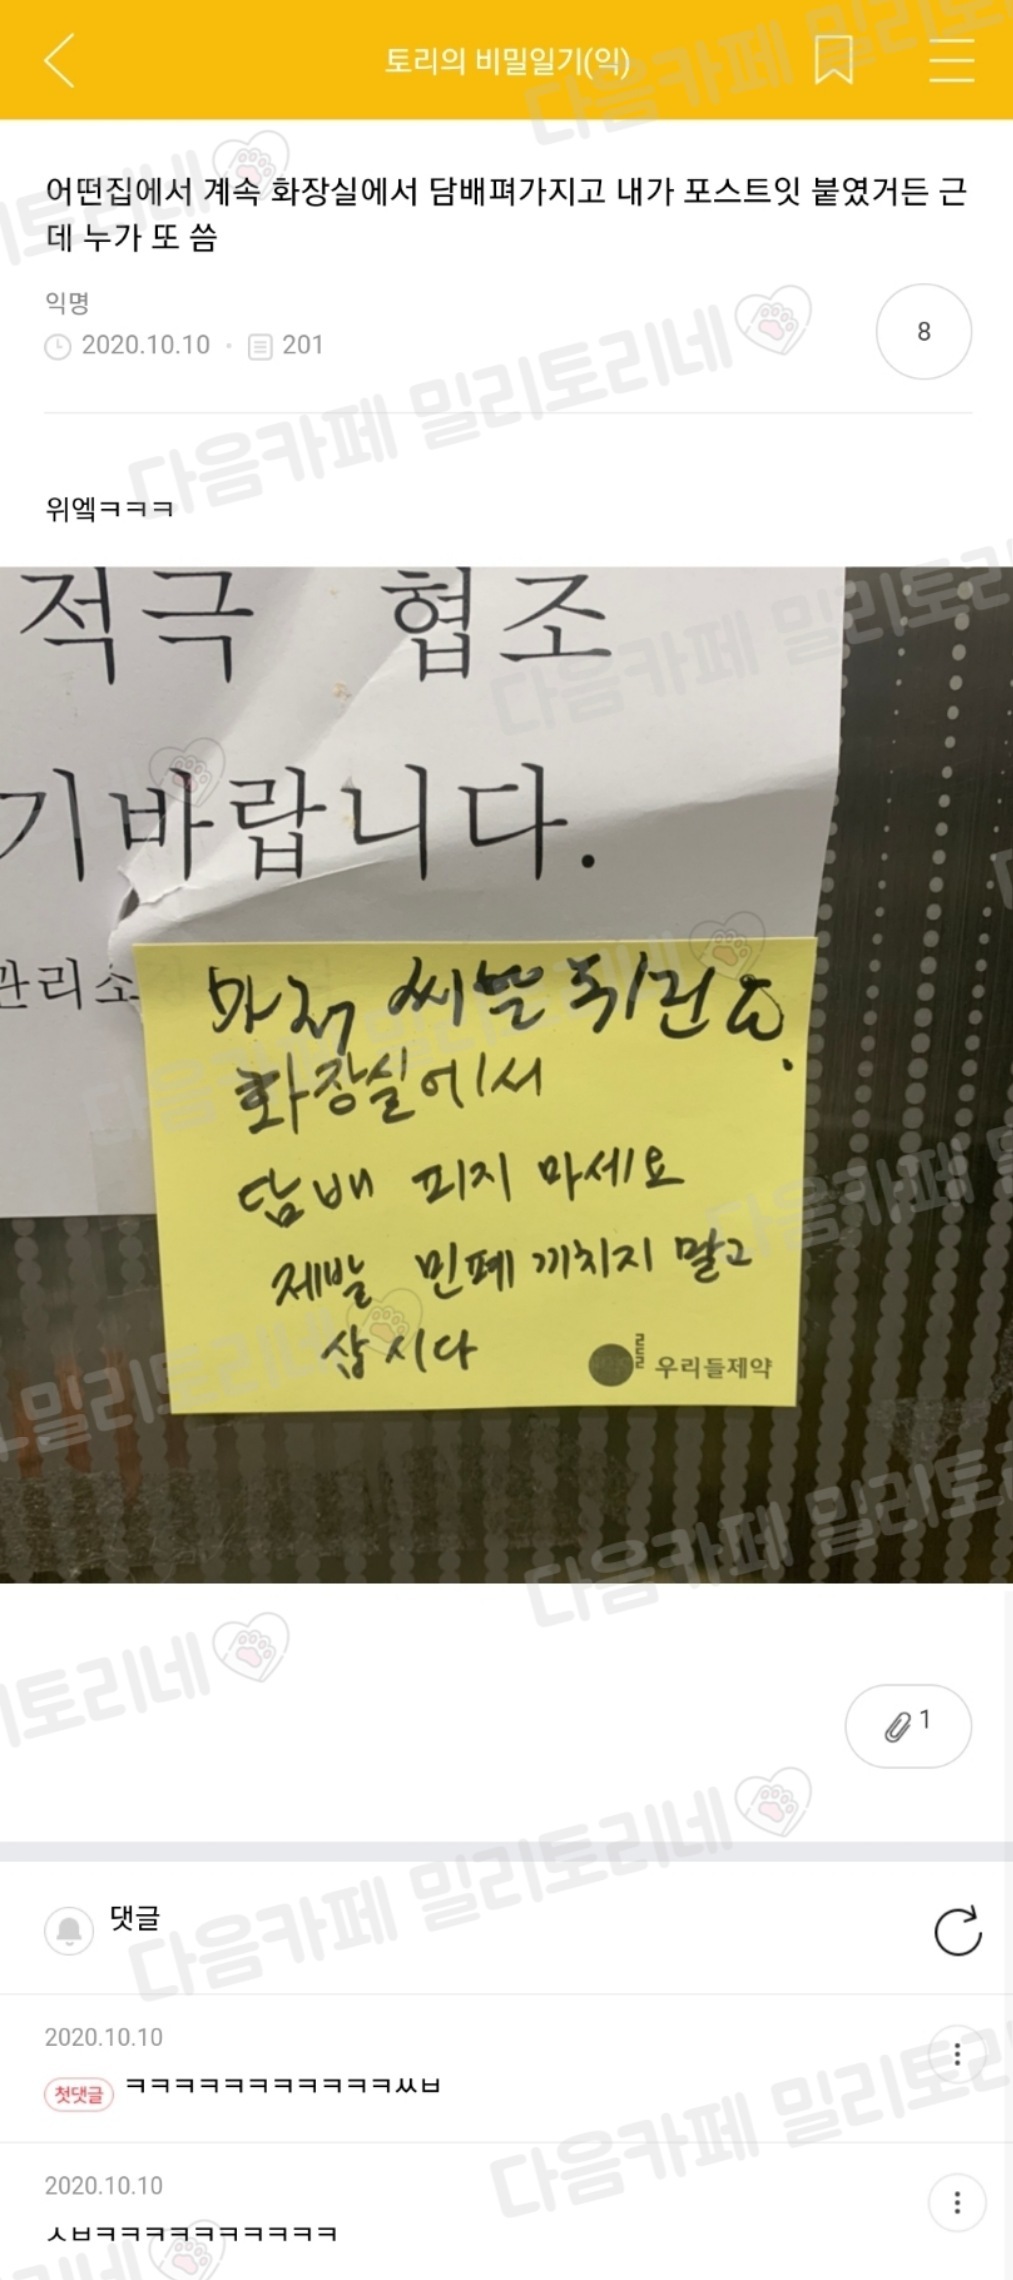 토리의 비밀일기(익)
어떤집에서 계속 화장실에서 담배펴가지고 내가 포스트잇 붙였거든 근
데 누가 또 씀
익명
2020.10.10 · 201
8
위엨ㅋㅋㅋ
적극 협조
기바랍니다.
관리소
마저 씨발
화장실에서
담배 피지 마세요
제발 민폐 끼치지 말고
삽시다
우리들제약
1
댓글
2020.10.10
첫댓글 ㅋㅋㅋㅋㅋㅋㅋㅋㅋㅋㅋㅆㅂ
2020.10.10
ㅅㅂㅋㅋㅋㅋㅋㅋㅋㅋㅋㅋ
다음카페 밀리토리네